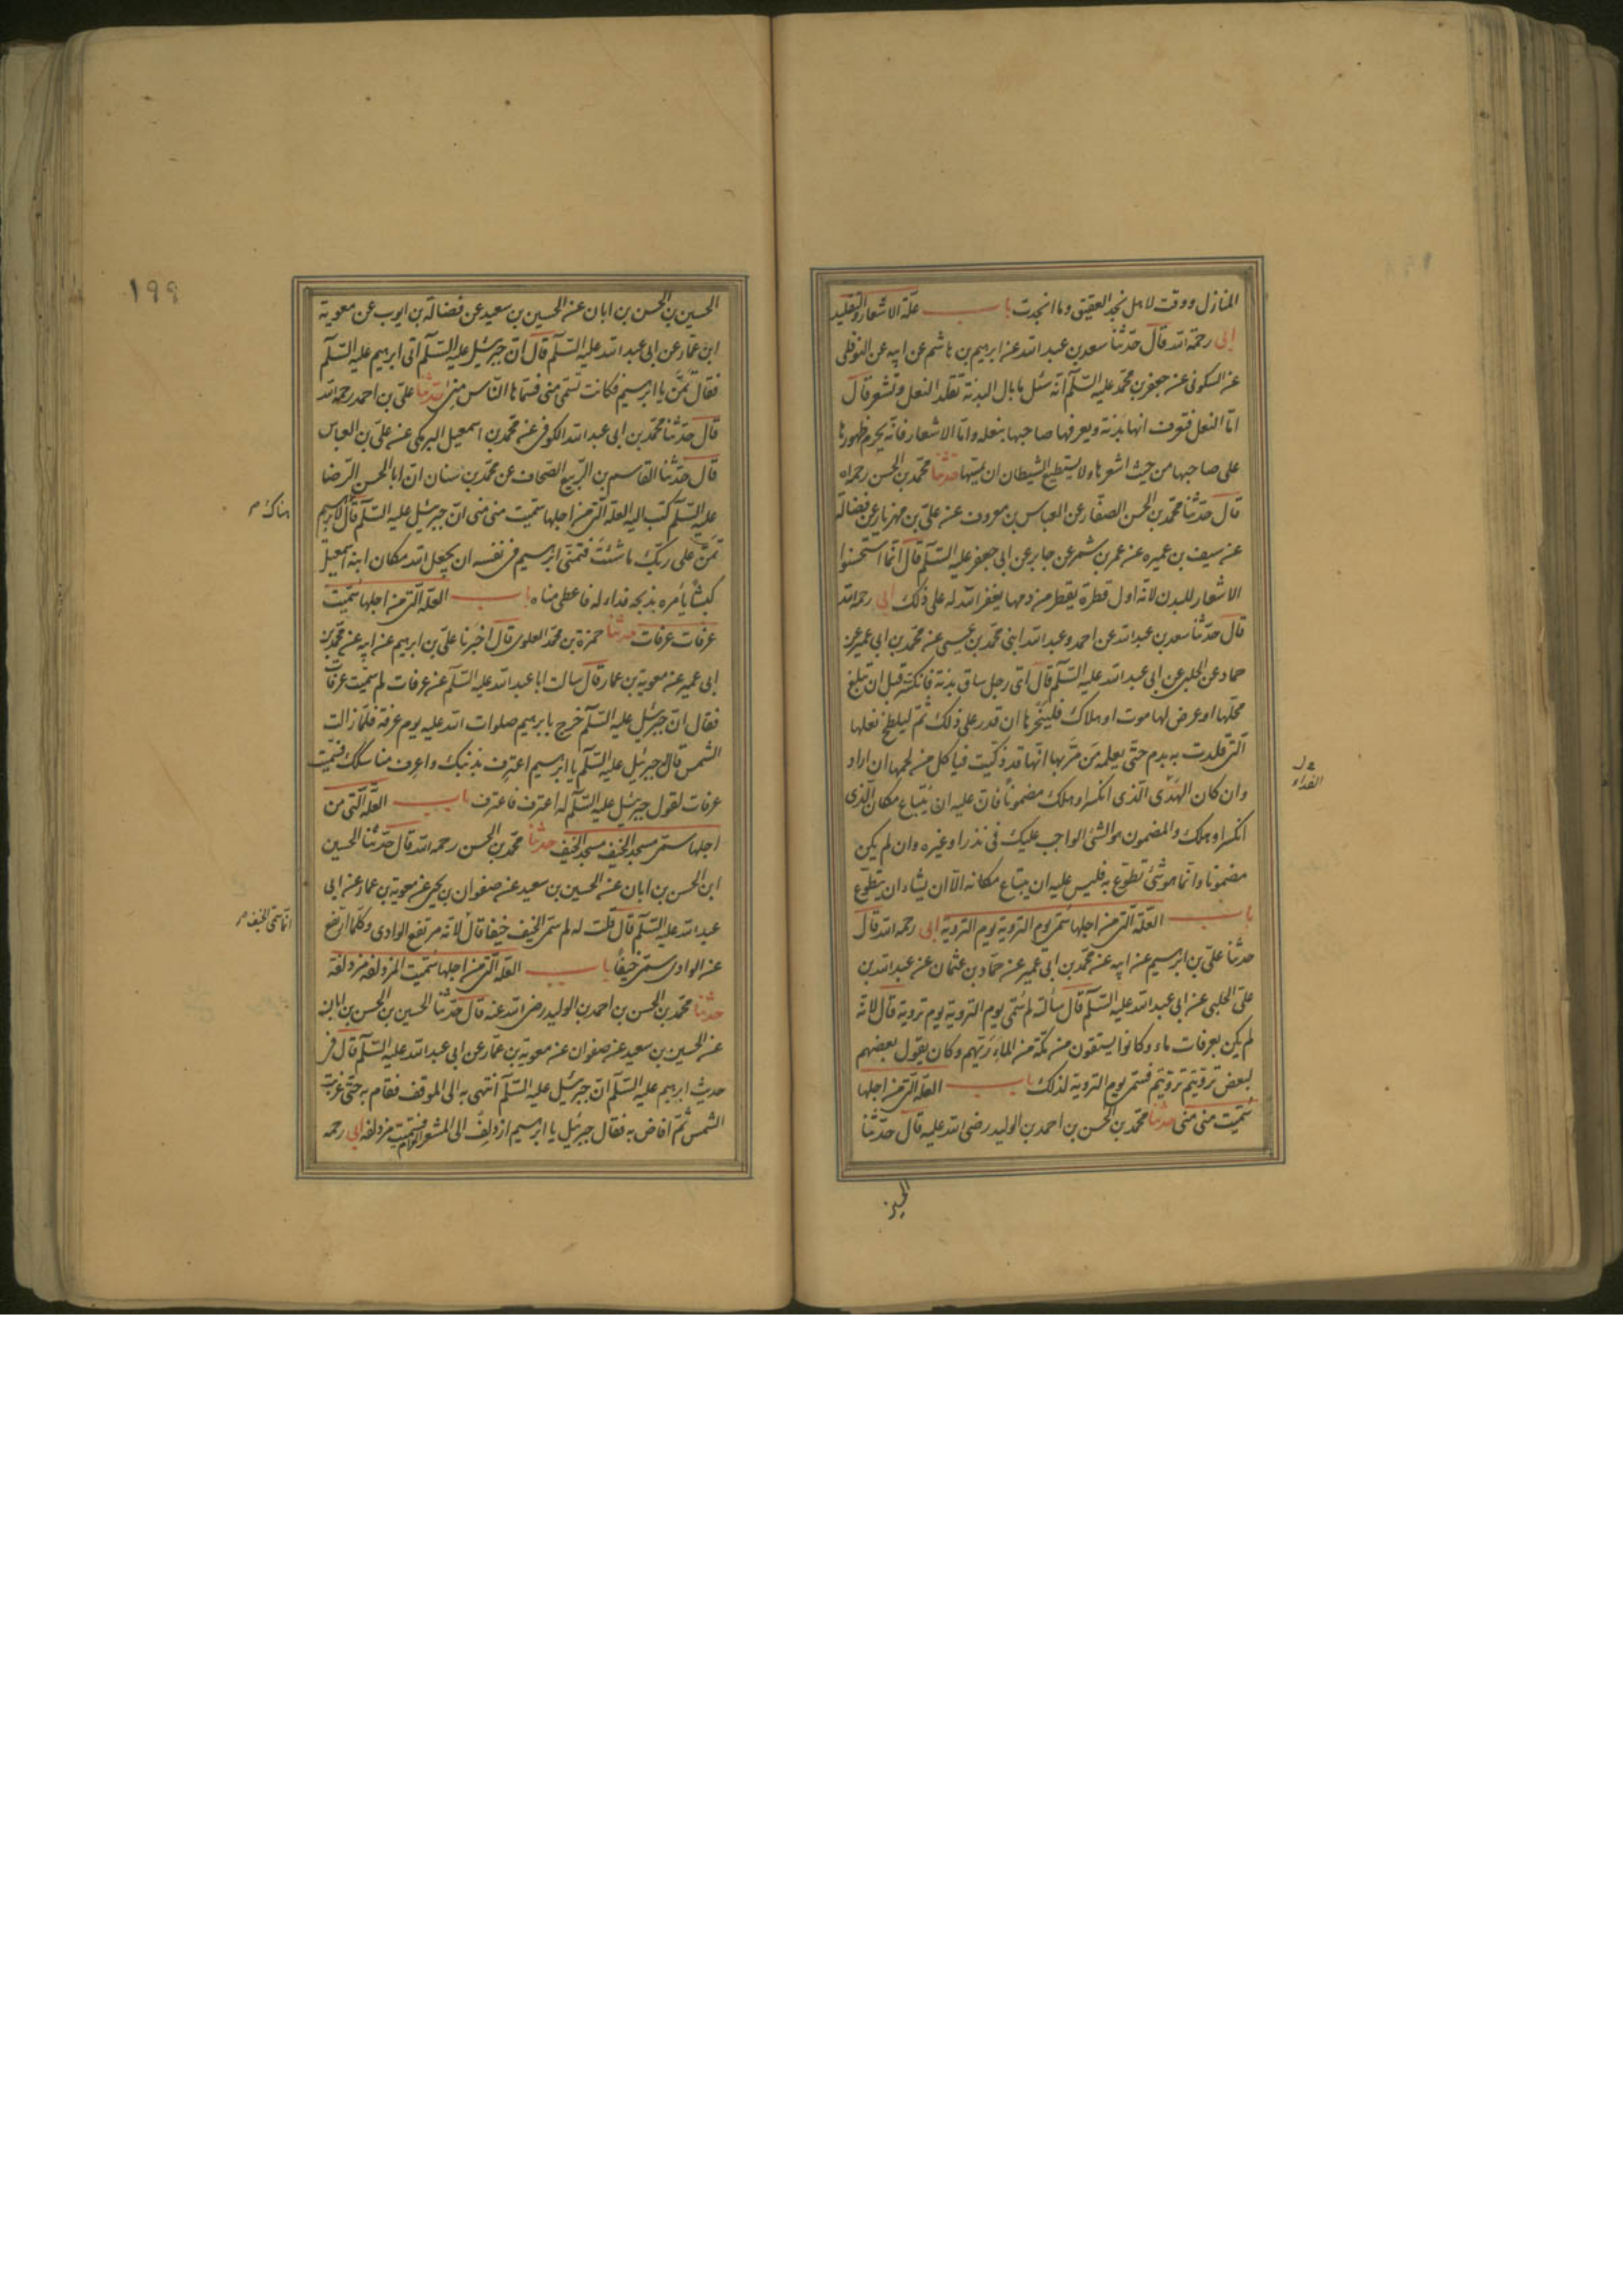 المنازل ووقت لاهل نجد العقيق وما انجدت باب علة الاشعار والتقليد
ابى رحمة الله قال حدثنا سعد بن عبد الله عن ابرهيم بن هاشم عن ابيه عن النوفلى
عن السكونى عن جعفر بن محمد عليه السلم انه سئل ما بال البدنة تقلد النعل وتشعر قال
اما النعل فتعرف انها بدنة ويعرفها صاحبها بنعله واما الاشعار فانه يحرم ظهورها
على صاحبها من حيث اشعرها ولا يستطيع الشيطان ان يمسها حدثنا محمد بن الحسن رحمه الله
قال حدثنا محمد بن الحسن الصفار عن العباس بن معروف عن على بن مهزيار عن فضالة
عن سيف بن عميره عن عمر بن شمر عن جابر عن ابى جعفر عليه السلم قال انما استحسنوا
الاشعار للبدن لانه اول قطرة يقطر من دمها يغفر الله له على ذلك ابى رحمه الله
قال حدثنا سعد بن عبد الله عن احمد وعبد الله ابنى محمد بن عيسى عن محمد بن ابى عمير عن
حماد عن الحلبى عن ابى عبد الله عليه السلم قال اى رجل ساق بدنة فانكسرت قبل ان تبلغ
محلها او عرض لها موت او هلاك فلينحرها ان قدر على ذلك ثم ليلطخ نعلها
التى قلدت به بدم حتى يعلم من مر بها انها قد ذكيت فياكل من لحمها ان اراد
وان كان الهدى الذى انكسر او هلك مضمونا فان عليه ان يبتاع مكان الذى
انكسر او هلك والمضمون هو الشئ الواجب عليك فى نذر او غيره وان لم يكن
مضمونا وانما هو شئ تطوع به فليس عليه ان يبتاع مكانه الا ان يشاء ان يتطوع
باب العلة التى من اجلها سمى يوم التروية يوم التروية ابى رحمه الله قال
حدثنا على بن ابرهيم عن ابيه عن محمد بن ابى عمير عن حماد بن عثمان عن عبد الله بن
على الحلبى عن ابى عبد الله عليه السلم قال سألته لم سمى يوم التروية يوم تروية قال لانه
لم يكن بعرفات ماء وكانوا يستقون من مكة من الماء ريهم وكان يقول بعضهم
لبعض ترويتم ترويتم فسمى يوم التروية لذلك باب العلة التى من اجلها
سميت منى منى حدثنا محمد بن الحسن بن احمد بن الوليد رضى الله عليه قال حدثنا
الحسين
الفداء
١٩٩
الحسين بن الحسن بن ابان عن الحسين بن سعيد عن فضالة بن ايوب عن معوية
ابن عمار عن ابى عبد الله عليه السلم قال ان جبرئيل عليه السلم اتى ابرهيم عليه السلم
فقال تمن يا ابرهيم فكانت تسمى منى فسماها الناس منى حدثنا على بن احمد رحمه الله
قال حدثنا محمد بن ابى عبد الله الكوفى عن محمد بن اسمعيل البرمكى عن على بن العباس
قال حدثنا القاسم بن الربيع الصحاف عن محمد بن سنان ان ابا الحسن الرضا
عليه السلم كتب اليه العلة التى من اجلها سميت منى منى ان جبرئيل عليه السلم قال لابرهيم
هناك
تمن على ربك ما شئت فتمنى ابرهيم فى نفسه ان يجعل الله مكان ابنه اسمعيل
كبشا يأمره بذبحه فداء له فاعطى مناه باب العلة التى من اجلها سميت
عرفات عرفات حدثنا حمزة بن محمد العلوى قال اخبرنا على بن ابرهيم عن ابيه عن محمد بن
ابى عمير عن معوية بن عمار قال سالت ابا عبد الله عليه السلم عن عرفات لم سميت عرفات
فقال ان جبرئيل عليه السلم خرج بابرهيم صلوات الله عليه يوم عرفة فلما زالت
الشمس قال جبرئيل عليه السلم يا ابرهيم اعترف بذنبك واعرف مناسكك فسميت
عرفات لقول جبرئيل عليه السلم له اعترف فاعترف باب العلة التى من
اجلها سمى مسجد الخيف مسجد الخيف حدثنا محمد بن الحسن رحمه الله قال حدثنا الحسين
ابن الحسن بن ابان عن الحسين بن سعيد عن صفوان بن يحيى عن معوية بن عمار عن ابى
عبد الله عليه السلم قال قلت له لم سمى الخيف خيفا قال لانه مرتفع الوادى وكلما ارتفع
انما سمى الخيف
عن الوادى سمى خيفا باب العلة التى من اجلها سميت المزدلفة مزدلفة
حدثنا محمد بن الحسن بن احمد بن الوليد رضى الله عنه قال حدثنا الحسين بن الحسن بن ابان
عن الحسين بن سعيد عن صفوان عن معوية بن عمار عن ابى عبد الله عليه السلم قال فى
حديث ابرهيم عليه السلم ان جبرئيل عليه السلم انتهى به الى الموقف فقام به حتى غربت
الشمس ثم افاض به فقال جبرئيل يا ابرهيم ازدلف الى المشعر الحرام فسميت مزدلفة ابى رحمه